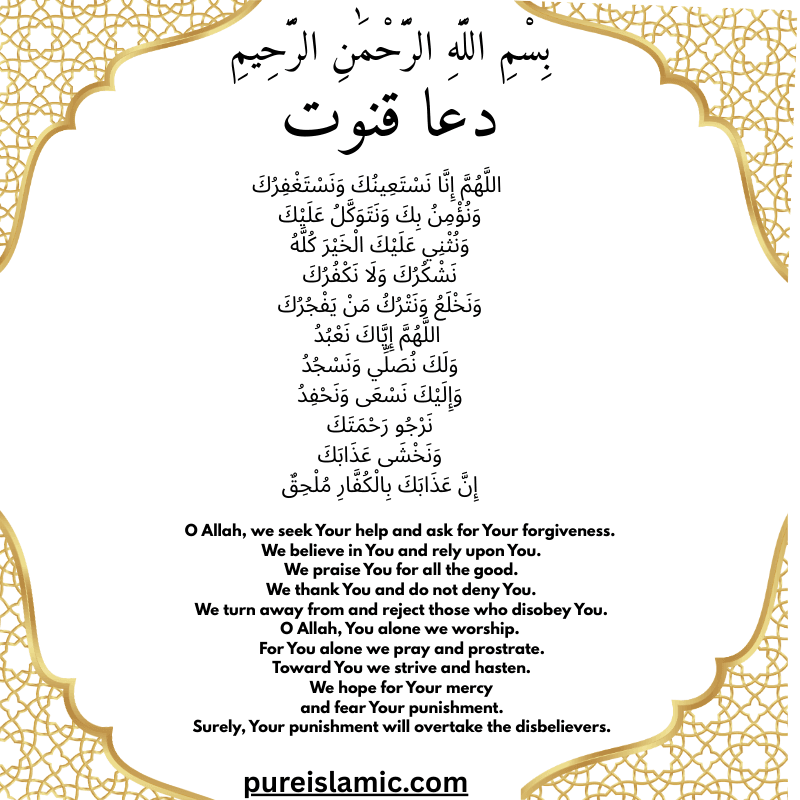 بِسْمِ اللّٰهِ الرَّحْمَٰنِ الرَّحِيمِ
دعا قنوت
اللَّهُمَّ إِنَّا نَسْتَعِينُكَ وَنَسْتَغْفِرُكَ
وَنُؤْمِنُ بِكَ وَنَتَوَكَّلُ عَلَيْكَ
وَنُثْنِي عَلَيْكَ الْخَيْرَ كُلَّهُ
نَشْكُرُكَ وَلَا نَكْفُرُكَ
وَنَخْلَعُ وَنَتْرُكُ مَنْ يَفْجُرُكَ
اللَّهُمَّ إِيَّاكَ نَعْبُدُ
وَلَكَ نُصَلِّي وَنَسْجُدُ
وَإِلَيْكَ نَسْعَى وَنَحْفِدُ
نَرْجُو رَحْمَتَكَ
وَنَخْشَى عَذَابَكَ
إِنَّ عَذَابَكَ بِالْكُفَّارِ مُلْحِقٌ
O Allah, we seek Your help and ask for Your forgiveness.
We believe in You and rely upon You.
We praise You for all the good.
We thank You and do not deny You.
We turn away from and reject those who disobey You.
O Allah, You alone we worship.
For You alone we pray and prostrate.
Toward You we strive and hasten.
We hope for Your mercy
and fear Your punishment.
Surely, Your punishment will overtake the disbelievers.
pureislamic.com